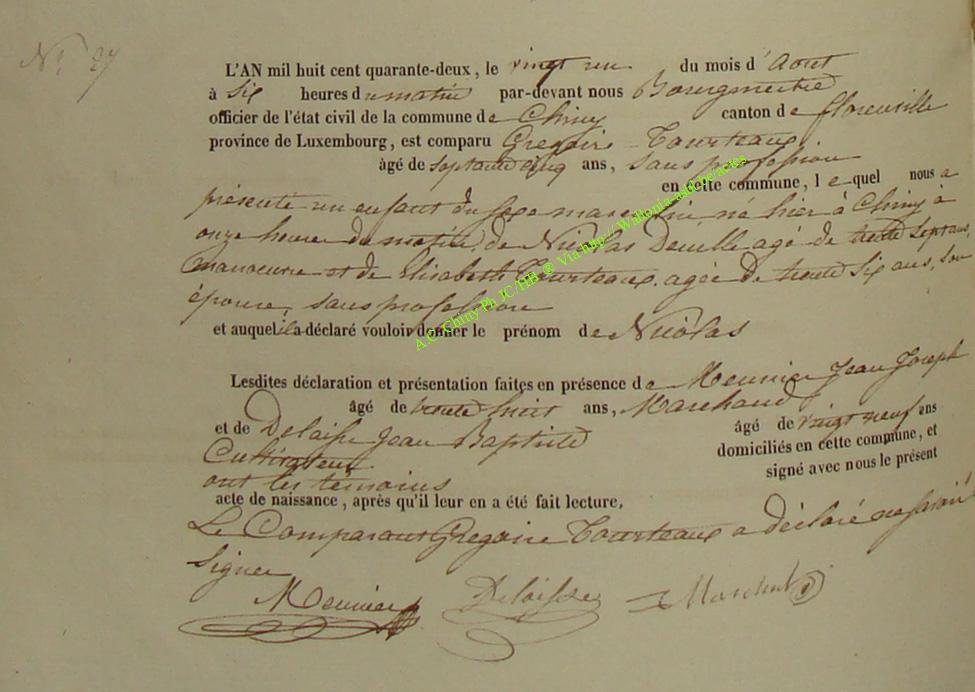 N.° 27
L'AN mil huit cent quarante-deux, le vingt un du mois d'Aout
à six heures du matin par-devant nous Bourgmestre
officier de l'état civil de la commune de Chiny canton de florenville
province de Luxembourg, est comparu Gregoire Tourteaux
âgé de septante cinq ans, sans profession
en cette commune, lequel nous a
présenté un enfant du sexe masculin né hier à Chiny à
onze heures du matin, de Nicolas Deville agé de trente sept ans,
manoeuvre et de Elisabeth Tourteaux agée de trente six ans, son
épouse, sans profession
et auquel il a déclaré vouloir donner le prénom de Nicolas
Lesdites déclaration et présentation faites en présence de Meunier Jean Joseph
âgé de trente huit ans, Marchand
et de Delaisse Jean Baptiste âgé de vingt neuf ans
Cultivateur domiciliés en cette commune, et
ont les temoins signé avec nous le présent
acte de naissance, après qu'il leur en a été fait lecture,
Le Comparant Gregoire Tourteaux a déclaré ne savoir
signer
Meunier Delaisse
A.C. Chiny Ph JC/HB ® Via http://Wallonia-asbl.be/actes